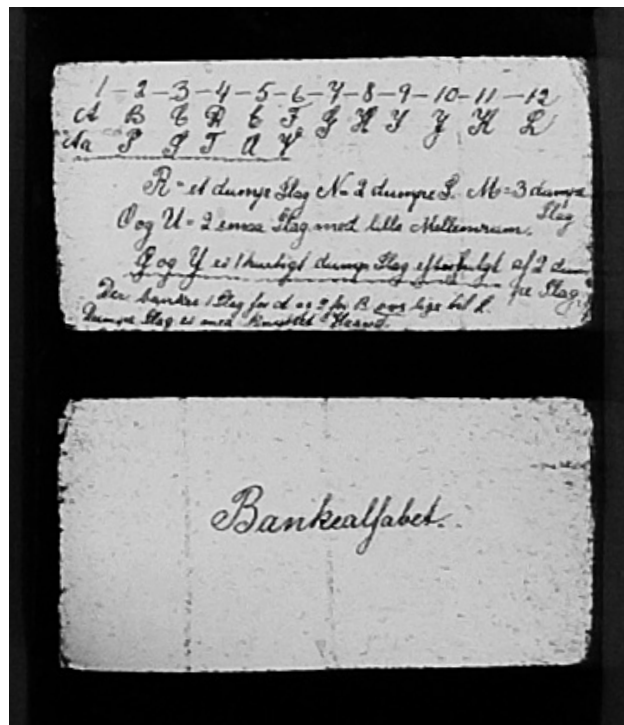 1 - 2 - 3 - 4 - 5 - 6 - 7 - 8 - 9 - 10 - 11 - 12
A B C D E F G H I J K L
Aa P S T Æ V
R = et dumpe Slag N = 2 dumpe S. M = 3 dumpe
Slag
O og U = 2 smaa Slag med lille Mellemrum.
Ø og Y er 1 hurtigt dumpe Slag efterfulgt af 2 dum-
pe Slag.
Der bankes 1 Slag for A og 2 for B osv lige til L.
Dumpe Slag er med knyttet Haand.
Bankealfabet.